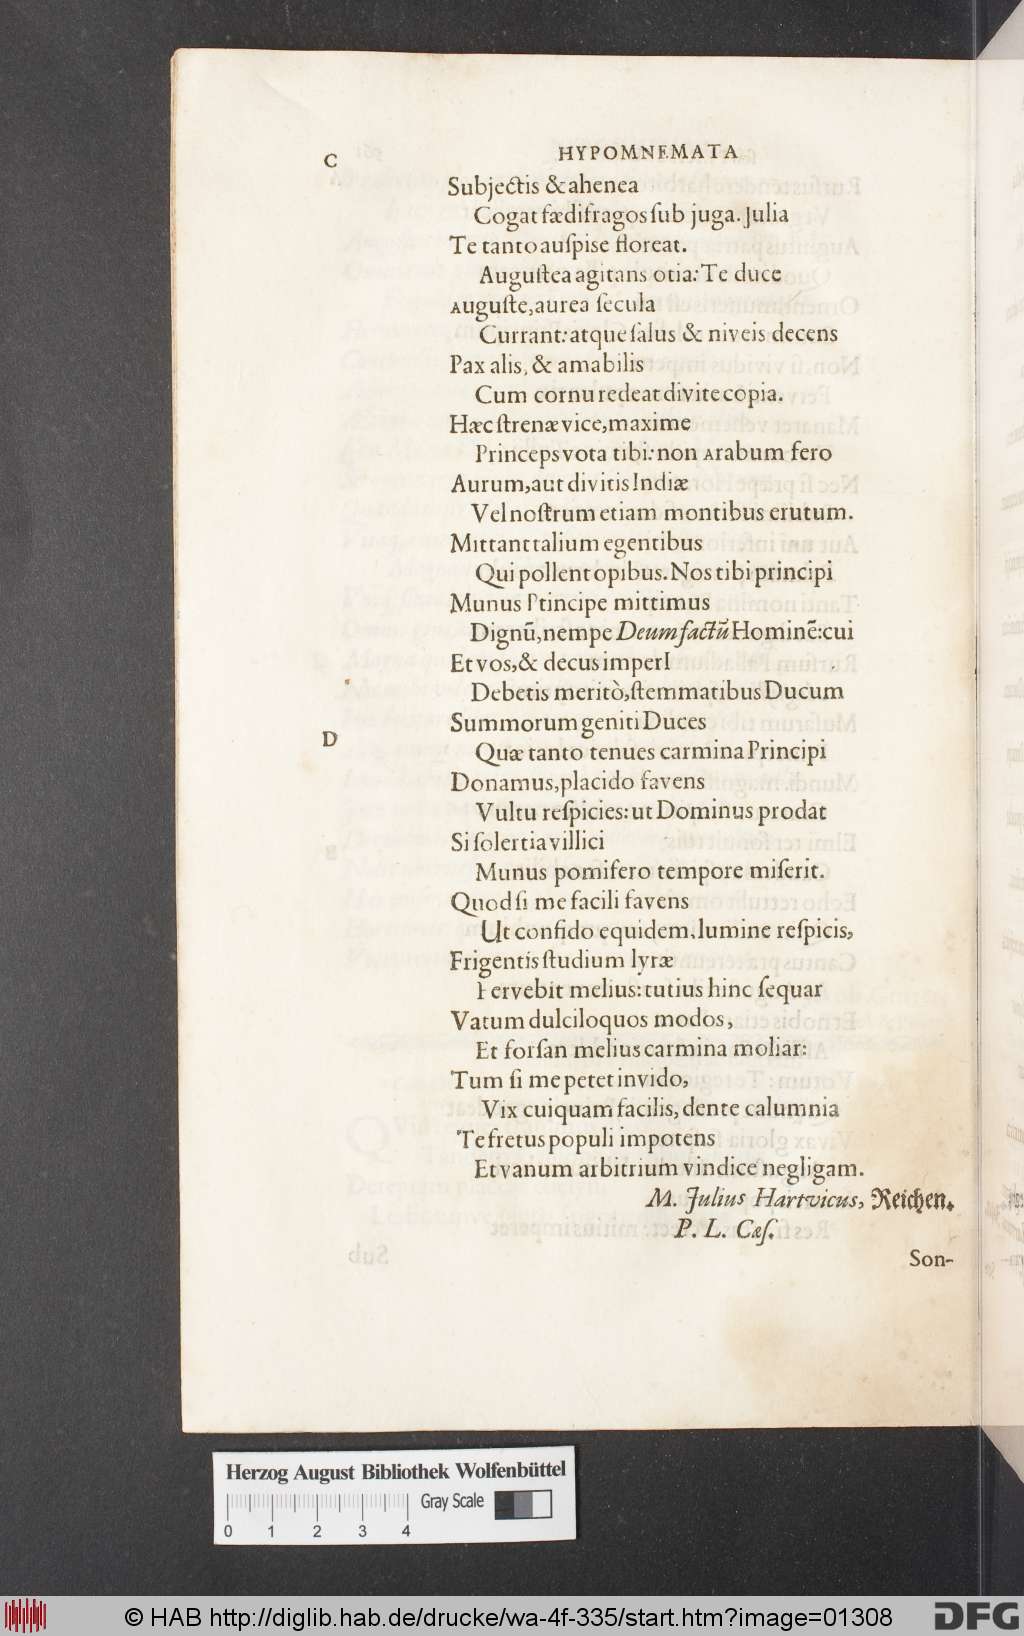 C
HYPOMNEMATA
Subjectis & ahenea
Cogat fœdifragos ſub juga. Julia
Te tanto auſpise floreat.
Auguſtea agitans otia: Te duce
Auguſte, aurea ſecula
Currant: atque ſalus & niveis decens
Pax alis, & amabilis
Cum cornu redeat divite copia.
Hæc ſtrenæ vice, maxime
Princeps vota tibi: non Arabum fero
Aurum, aut divitis Indiæ
Vel noſtrum etiam montibus erutum.
Mittant talium egentibus
Qui pollent opibus. Nos tibi principi
Munus Ptincipe mittimus
Dignū, nempe Deum factū Hominē: cui
Et vos, & decus imperI
Debetis meritò, ſtemmatibus Ducum
Summorum geniti Duces
D
Quæ tanto tenues carmina Principi
Donamus, placido favens
Vultu reſpicies: ut Dominus prodat
Si ſolertia villici
Munus pomifero tempore miſerit.
Quod ſi me facili favens
Ut confido equidem, lumine reſpicis,
Frigentis ſtudium lyræ
Fervebit melius: tutius hinc ſequar
Vatum dulciloquos modos,
Et forſan melius carmina moliar:
Tum ſi me petet invido,
Vix cuiquam facilis, dente calumnia
Te fretus populi impotens
Et vanum arbitrium vindice negligam.
M. Julius Hartvicus, Reichen.
P. L. Cæſ.
Son-
Herzog August Bibliothek Wolfenbüttel
Gray Scale
0 1 2 3 4
© HAB http://diglib.hab.de/drucke/wa-4f-335/start.htm?image=01308
DFG